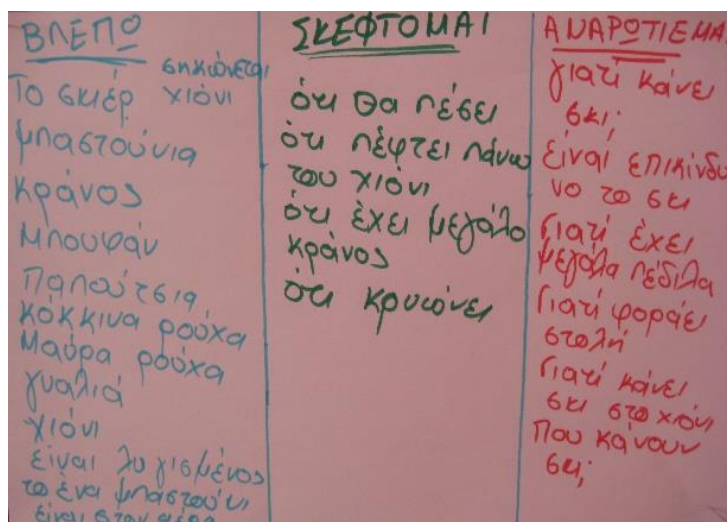 ΒΛΕΠΩ
σηκώνεται
Το σκιέρ χιόνι
μπαστούνια
κράνος
Μπουφάν
Παπούτσια
κόκκινα ρούχα
Μαύρα ρούχα
γυαλιά
χιόνι
είναι λυγισμένος
το ένα μπαστούνι
είναι στον αέρα
ΣΚΕΦΤΟΜΑΙ
ότι θα πέσει
ότι πέφτει πάνω
του χιόνι
ότι έχει μεγάλο
κράνος
ότι κρυώνει
ΑΝΑΡΩΤΙΕΜΑΙ
γιατί κάνει
σκι;
είναι επικίνδυ
νο το σκι
Γιατί έχει
μεγάλα πέδιλα
Γιατί φοράει
στολή
Γιατί κάνει
σκι στο χιόνι
Που κάνουν
σκι;